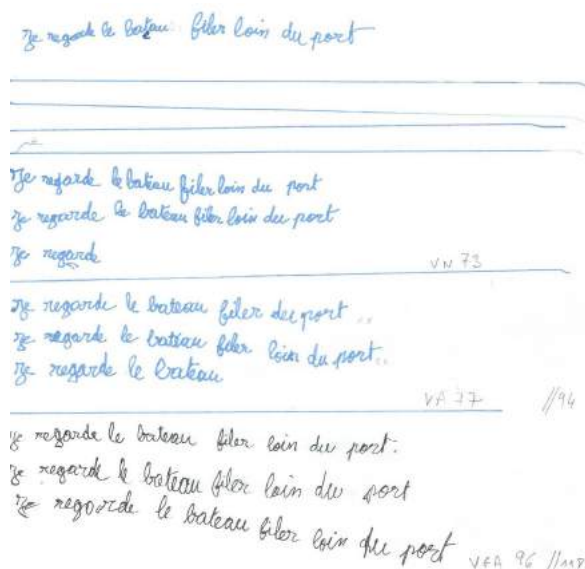 Je regarde le bateau filer loin du port
Je regarde le bateau filer loin du port
Je regarde le bateau filer loin du port
Je regarde
VN 73
Je regarde le bateau filer du port..
Je regarde le bateau filer loin du port..
Je regarde le bateau
VA 77 //94
Je regarde le bateau filer loin du port.
Je regarde le bateau filer loin du port
Je regarde le bateau filer loin du port
VEA 96